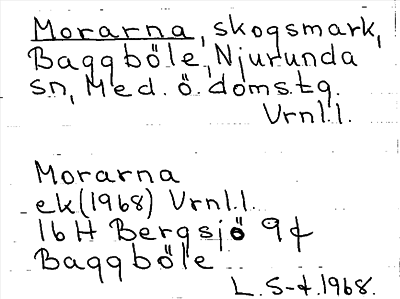 Morarna, skogsmark,
Baggböle, Njurunda
sn, Med. ö. domstg.
Vrnl.l.
Morarna
ek (1968) Vrnl.l.
16H Bergsjö 9f
Baggböle
L. S-t. 1968.